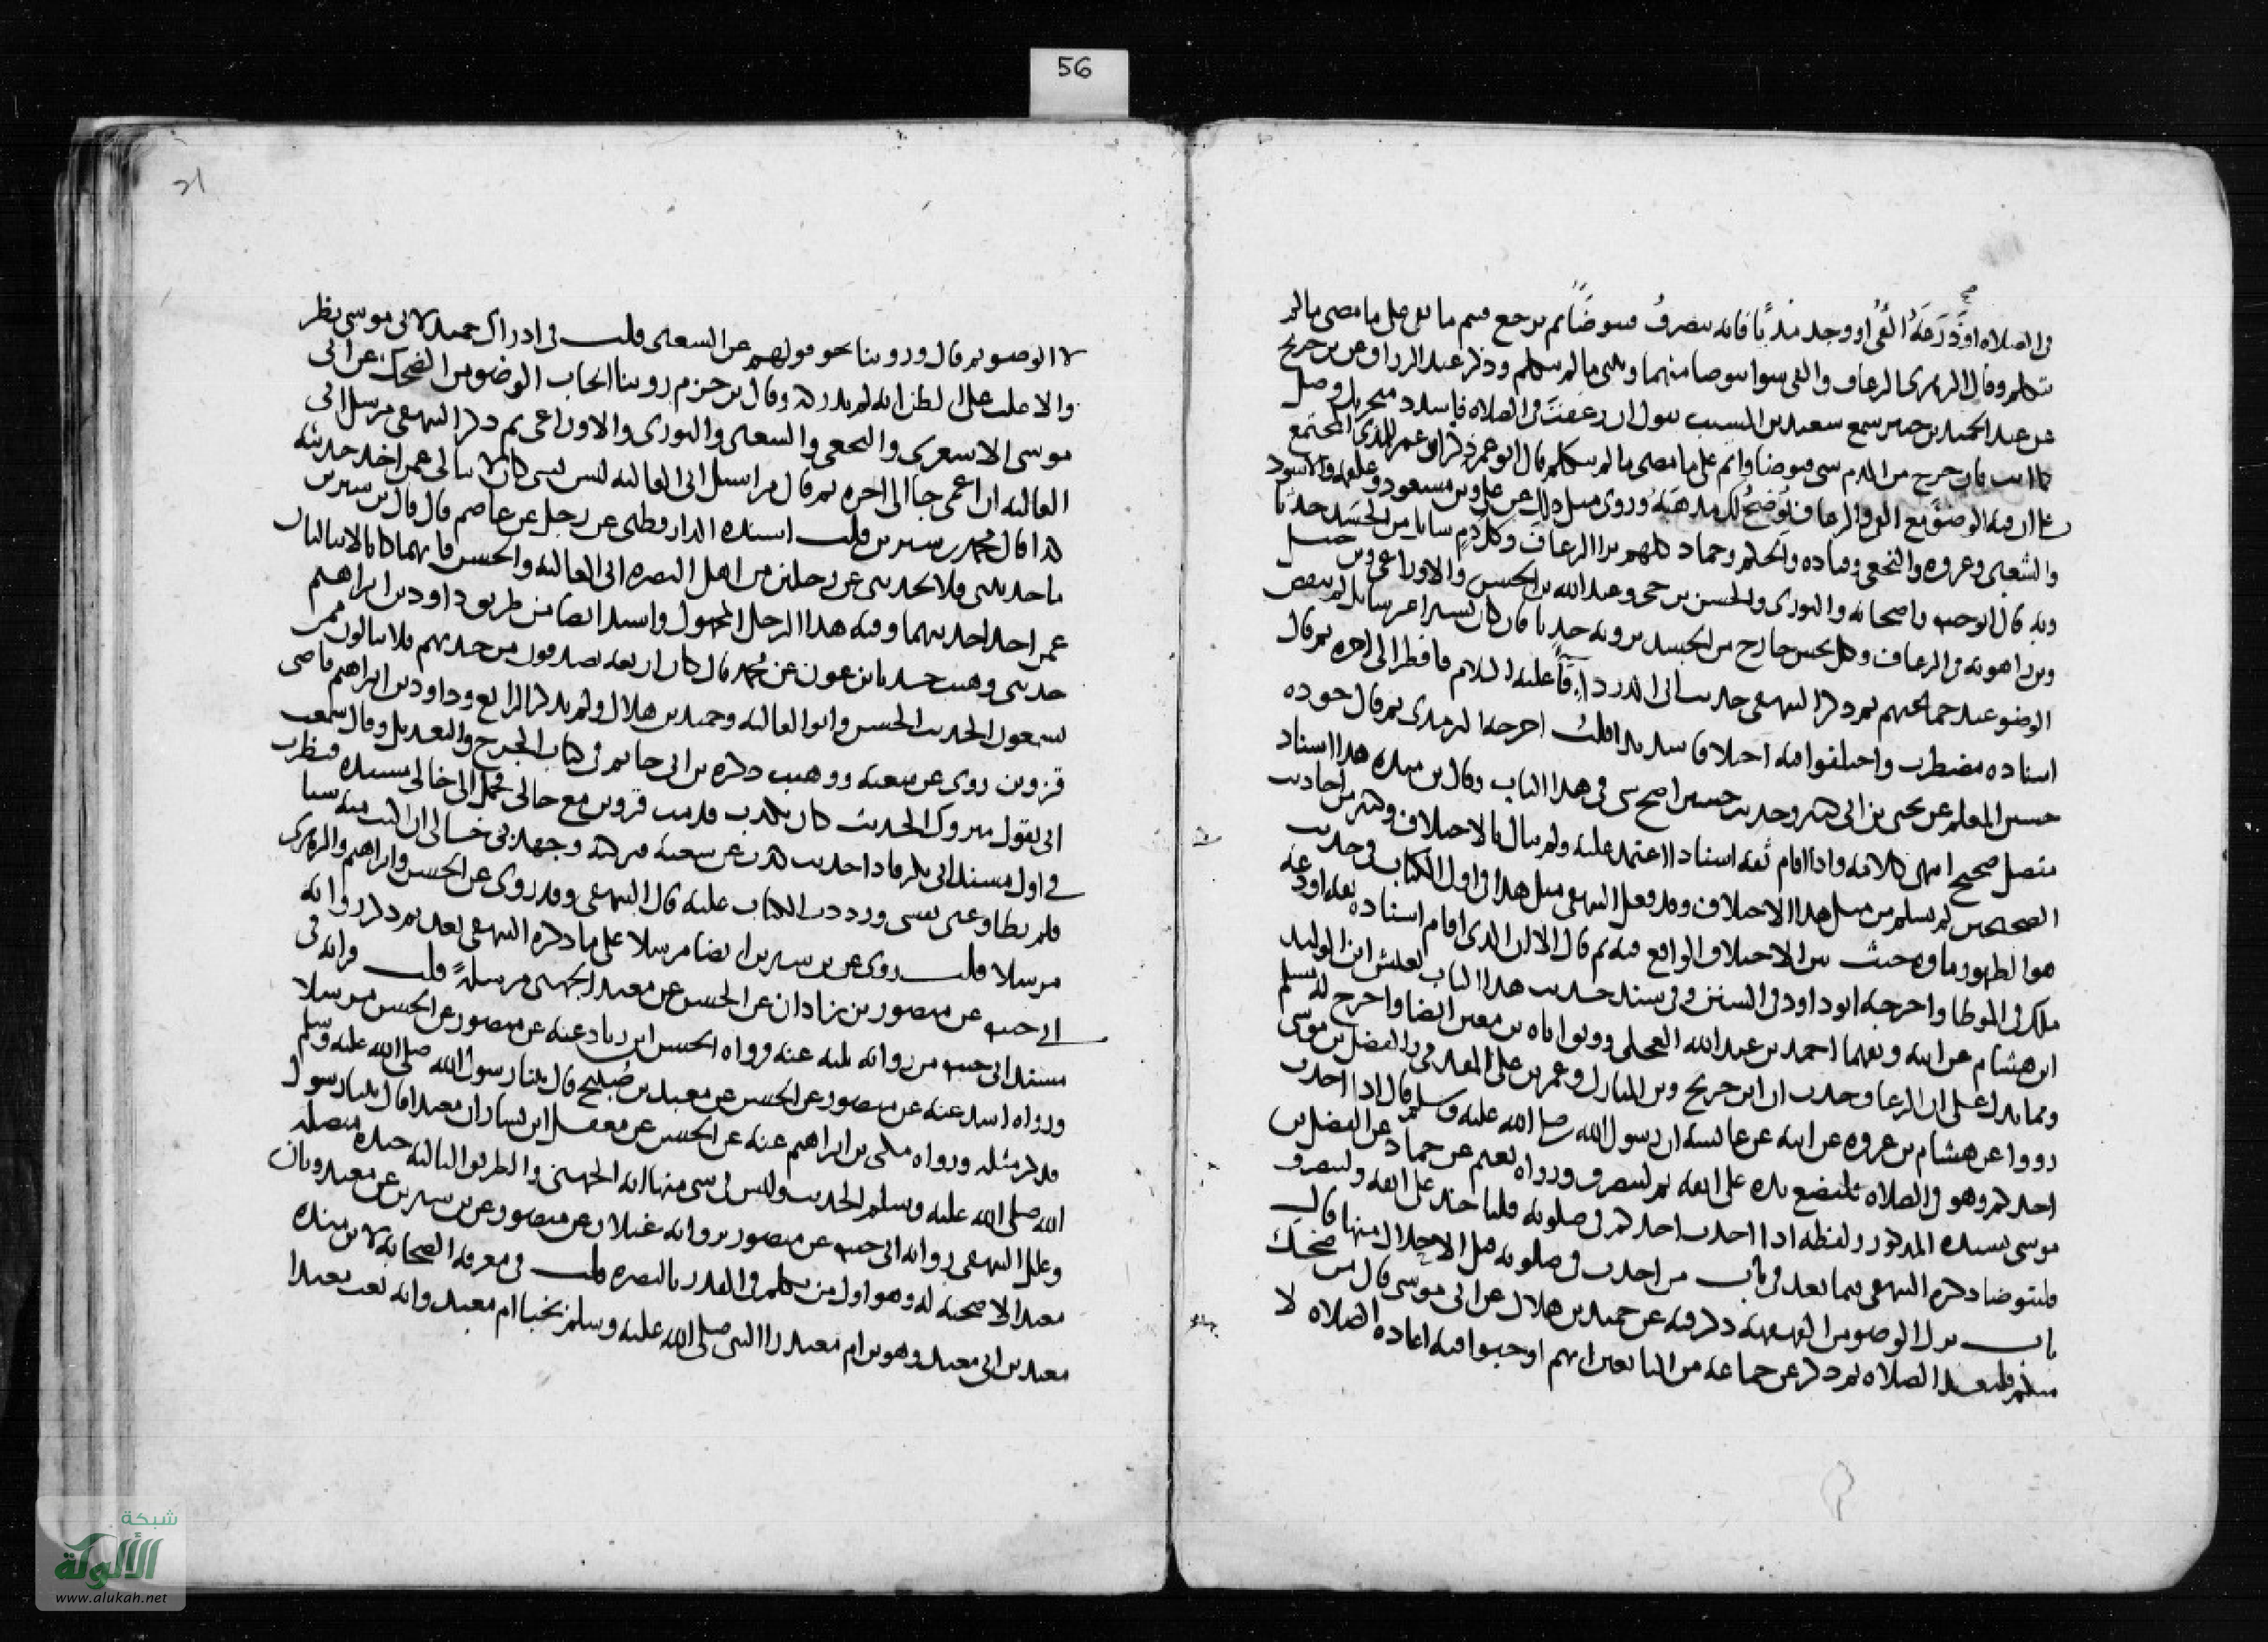 56
في الصلاه او ذرعه القئ او وجد مذيا فانه ينصرف فيتوضأ ثم يرجع فيتم ما بقي على ما مضى ما لم
يتكلم وقال الزهري الرعاف والقي سوا يتوضا منهما ويبني ما لم يتكلم وذكر عبد الرزاق عن بن جريج
عن عبد الحميد بن جبير سمع سعيد بن المسيب يقول ان رعفت في الصلاه فاسدد منخريك وصل
كما انت فان خرج من الدم شي فتوضا واتم على ما مضى ما لم تتكلم قال ابو عمر ذكر ابن عمر للمذي المجتمع
على ان فيه الوضوء مع القي والرعاف يوضح لك مذهبه وروى مثل ذلك عن علي وبن مسعود وعلقمه والاسود
والشعبي وعروه والنخعي وقتاده والحكم وحماد كلهم يرا الرعاف وكل دم سايل من الجسد حدثا
وبه قال ابو حنيفه واصحابه والثوري والحسن بن حي وعبد الله بن الحسن والاوزاعي وبن حنبل
وبن راهويه في الرعاف وكل نجس خارج من الجسد يرونه حدثا فان كان يسيرا غير سايل لم ينقض
الوضو عند جماعتهم ثم ذكر البيهقي حديث ابي الدرداء قاء عليه السلام فافطر الى اخره ثم قال
اسناده مضطرب واختلفوا فيه اختلافا شديدا قلت اخرجه الترمذي ثم قال جوده
حسين المعلم عن يحيى بن ابي كثير وحديث حسين اصح شي في هذا الباب وقال بن منده هذا اسناد
متصل صحيح انتهى كلامه واذا اقام ثقه اسنادا اعتمد عليه ولم يبال بالاختلاف وكثير من احاديث
الصحيحين لم يسلم من مثل هذا الاختلاف وقد فعل البيهقي مثل هذا في اول الكتاب في حديث
هو الطهور ماوه حيث بين الاختلاف الواقع فيه ثم قال الا ان الذي اقام اسناده ثقه اودعه
ملك في الموطا واخرجه ابو داود في السنن وفي سند حديث هذا الباب يعيش ابن الوليد
ابن هشام عن ابيه وثقهما احمد بن عبد الله العجلي ووثق اباه بن معين ايضا واخرج له مسلم
ومما يدل على ان الرعاف حدث ان ابن جريج وبن المبارك وعمر بن علي المقدمي والفضل بن موسى
رووا عن هشام بن عروه عن ابيه عن عائشه ان رسول الله صلى الله عليه وسلم قال اذا احدث
احدكم وهو في الصلاه فليضع يده على انفه ثم لينصرف ورواه نعيم عن حماد عن الفضل بن
موسى بسنده المذكور ولفظه اذا احدث احدكم في صلوته فلياخذ على انفه ولينصرف
فليتوضا ذكره البيهقي فيما بعد في باب من احدث في صلوته قبل الاحلال منها قال
باب ترك الوضو من القهقهه ذكر فيه عن حميد بن هلال عن ابي موسى قال من ضحك
منكم فليعد الصلاه ثم ذكر عن جماعه من التابعين انهم اوجبوا فيه اعاده الصلاه لا
21
لا الوضو ثم قال وروينا نحو قولهم عن الشعبي قلت في ادراك حميد لابي موسى نظر
والاغلب على الظن انه لم يدركه وقال بن حزم روينا ايجاب الوضو من الضحك عن ابي
موسى الاشعري والنخعي والشعبي والثوري والاوزاعي ثم ذكر البيهقي مرسل ابي
العاليه ان اعمى جا الى اخره ثم قال مراسيل ابي العاليه ليس بشي كان لا يبالي عمن اخذ حديثه
كذا قال محمد بن سيرين قلت اسنده الدارقطني عن رجل عن عاصم قال قال بن سيرين
ما حدثتني فلا تحدثني عن رجلين من اهل البصره ابي العاليه والحسن فانهما كانا لا يباليان
عمن اخذا حديثهما وفيه هذا الرجل المجهول واسند ايضا من طريق داود بن ابراهيم
حدثني وهيب حدثنا بن عون عن محمد قال كان اربعه يصدقون من حدثهم فلا يبالون ممن
يسمعون الحديث الحسن وابو العاليه وحميد بن هلال ولم يذكر الرابع وداود بن ابراهيم قاضي
قزوين روى عن شعبه ووهيب ذكره بن ابي حاتم في كتاب الجرح والتعديل وقال سمعت
ابي يقول متروك الحديث كان يكذب قدمت قزوين مع خالي فحمل الي خالي مسنده فنظرت
في اول مسند ابي بكر فاذا حديث كذب عن شعبه فتركته وجهد بي خالي ان اكتب منه شيا
فلم تطاوعني نفسي ورددت الكتاب عليه قال البيهقي وقد روى عن الحسن وابراهيم والزهري
مرسلا قلت روى عن بن سيرين ايضا مرسلا على ما ذكره البيهقي بعد ثم ذكر روايه
ابي حنيفه عن منصور بن زاذان عن الحسن عن معبد الجهني مرسلةً قلت قرانه في
مسند ابي حنيفه من روايه عنه ورواه الحسن ابن زياد عنه عن منصور عن الحسن مرسلا
ورواه اسد عنه عن منصور عن الحسن عن معبد بن صُبيح قال بينا رسول الله صلى الله عليه وسلم
فذكر مثله ورواه مكي بن ابراهيم عنه عن الحسن عن معقل ابن يسار ان معبدا قال بينا رسول
الله صلى الله عليه وسلم الحديث وليس في شي منها انه الجهني والطريق الثالثه جيده متصله
وعلل البيهقي روايه ابي حنيفه عن منصور بروايه غيلان عن منصور عن بن سيرين عن معبد وبان
معبدا لا صحبه له وهو اول من تكلم في القدر بالبصره قلت في معرفه الصحابه لابن منده
معبد بن ابي معبد وهو بن ام معبد راا النبي صلى الله عليه وسلم بخبا ام معبد وانه بعث معبدا
شبكة
الألوكة
www.alukah.net